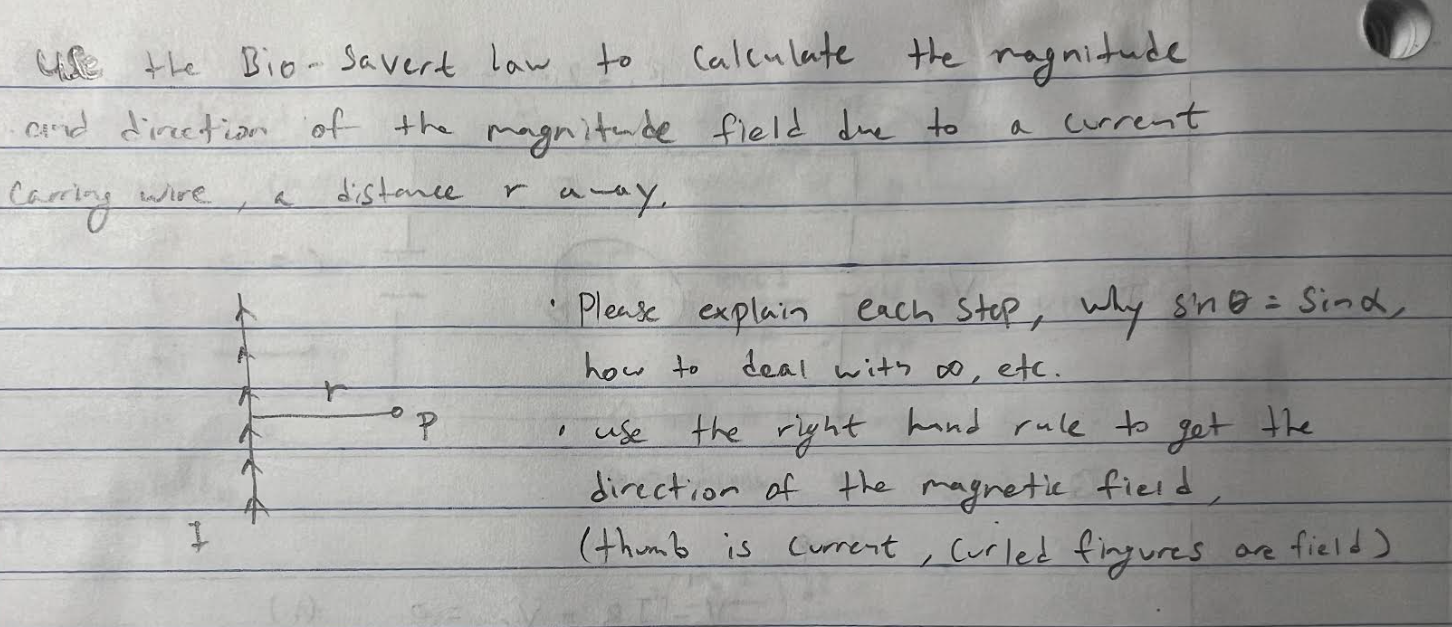 use the Bio-Savert law to Calculate the magnitude
and direction of the magnitude field due to a current
Carring wire, a distance r away.
· Please explain each step, why sin θ = Sin α,
how to deal with ∞, etc.
r
P
· use the right hand rule to get the
direction of the magnetic field,
I
(thumb is current, curled fingures are field)